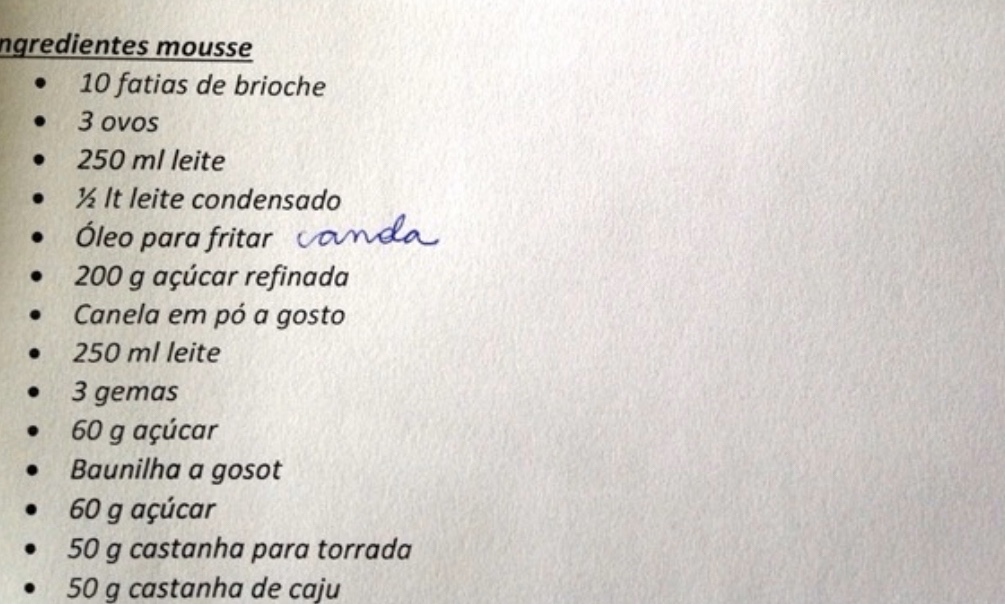 ngredientes mousse
• 10 fatias de brioche
• 3 ovos
• 250 ml leite
• ½ lt leite condensado
• Óleo para fritar canda
• 200 g açúcar refinada
• Canela em pó a gosto
• 250 ml leite
• 3 gemas
• 60 g açúcar
• Baunilha a gosot
• 60 g açúcar
• 50 g castanha para torrada
• 50 g castanha de caju